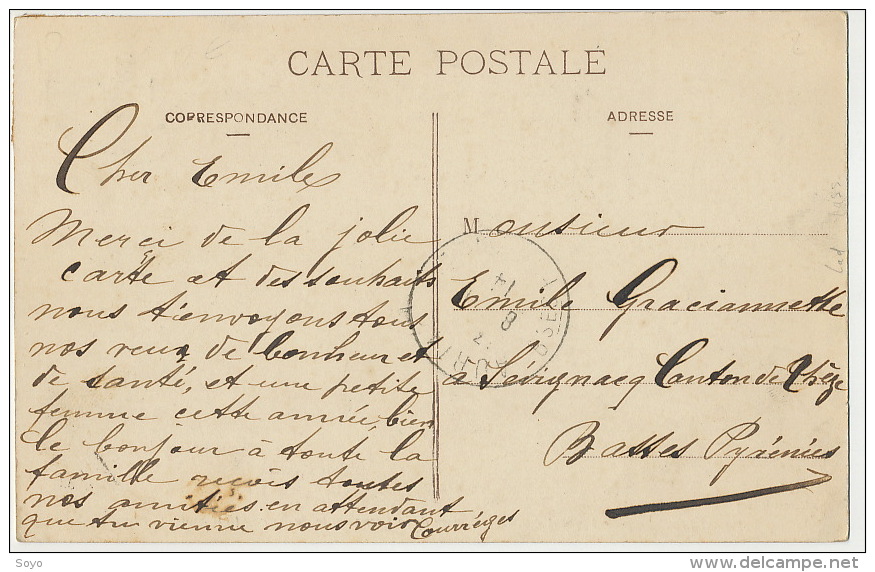 CARTE POSTALE
CORRESPONDANCE
Cher Emile
Merci de la jolie
carte et des souhaits
nous t'envoyons tous
nos veux de bonheur et
de santé, et une petite
femme cette année, bien
le bonjour à toute la
famille reçois toutes
nos amitiées en attendant
que tu vienne nous voir
Courréges
ADRESSE
Monsieur
Emile Graciannette
a Sévignacq Canton de Thèze
Basses Pyrénées
Soyo
www.delcampe.net